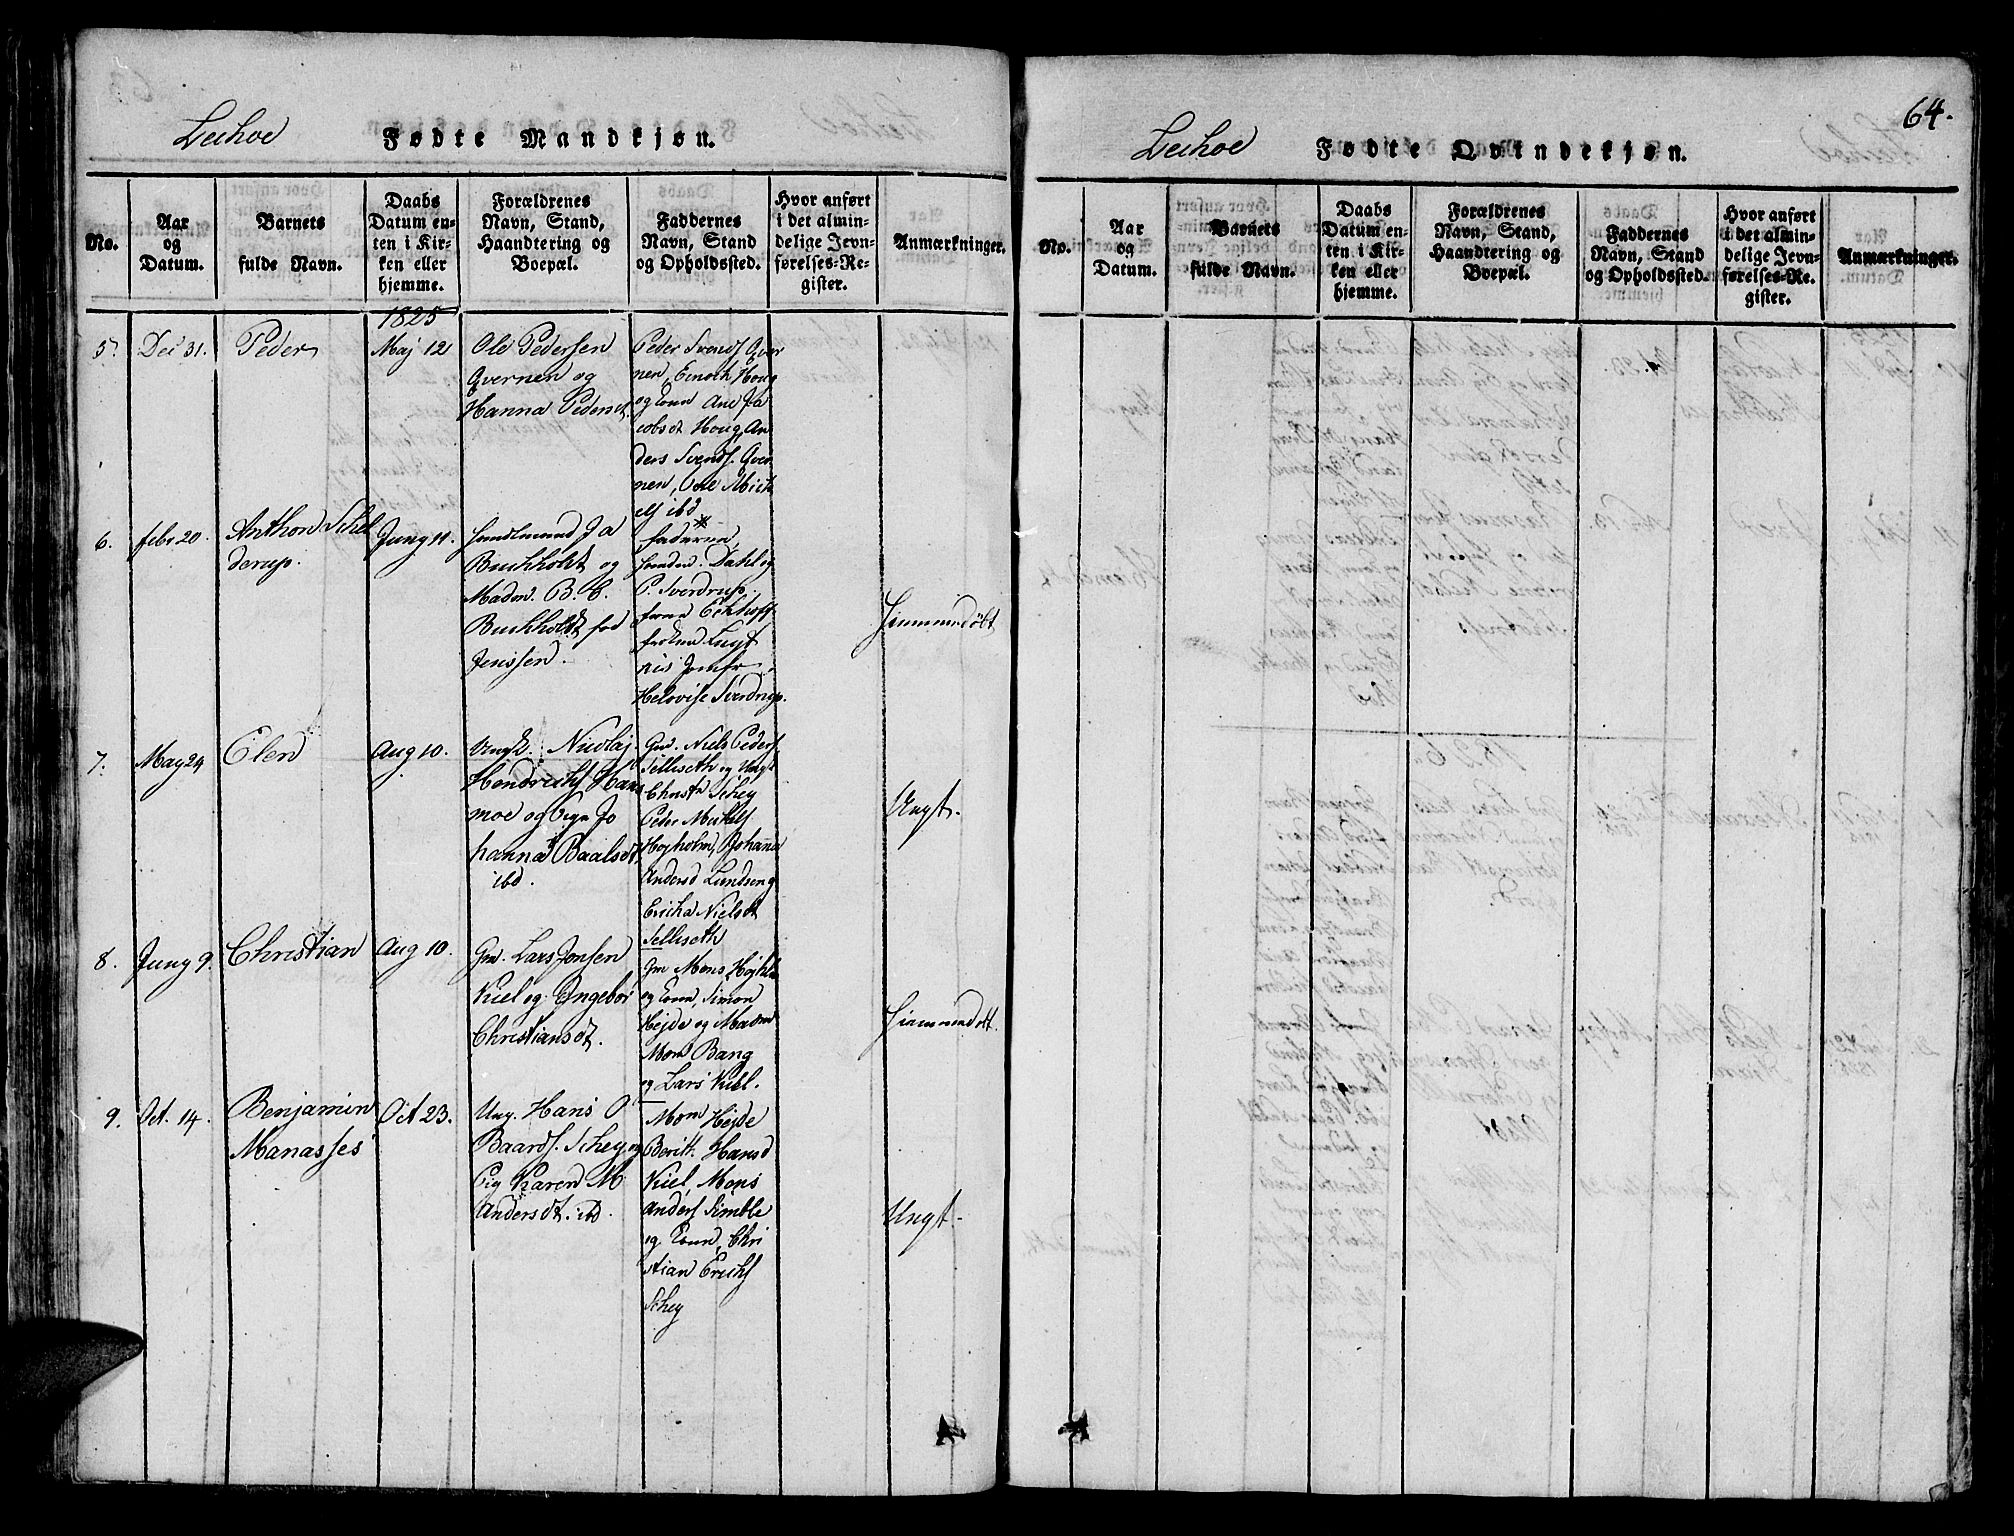 Leehoe
Fødte Mandkjøn.
No.
Aar
og
Datum.
Barnets
fulde Navn.
Daabs
Datum en-
ten i Kir-
ken eller
hjemme.
Forældrenes
Navn, Stand,
Haandtering og
Boepæl.
Faddernes
Navn, Stand
og Opholdssted.
Hvor anført
i det almin-
delige Jevn-
førelses-Re-
gister.
Anmærkninger.
1825
5.
Dec 31.
Peder
Maj 12
Ole Pedersen
Qvernen og
Hanna Pedersdt.
Peder Svends Qver
nen, Enoch Houg
og Kone Ane Ja
cobsdt Houg, An
ders Svends. Qver
nen, Mich
els ibd
6.
febr 20.
Anthon Schel
derup.
Juny 11.
Ja
Buchholdt og
Madm. B. C.
Buchholdt fød
Jenssen.
Dahl og
P. Sverdrup.
Eckhoff
Jomfr
Helovise Sverdrup.
7.
May 29
Elen
Aug 10.
Ungk. Nicolaj
Hendrichs Hans
moe og Pige Jo
hanna Baalsdt
ibd.
Gm. Niels Peders
Selliseth og Ungk
Christn Schey
Peder Michels
Hojholm, Johanna
Andersd Lundseng
Ericha Nielsdt
Selliseth
Ungt.
8.
Juny 9.
Christian
Aug 10.
Gm. Lars Jonsen
Kiel og Ingebor
Christiansdt.
Gm Mons
og Kone, Simon
Hejde og Madm
Mons Bang
og Lars Kiel.
9.
Oct. 14.
Benjamin
Manasses
Oct 23.
Ung. Hans O
Baards. Schey og
Pig Karen M
Andersdt. ibd.
Mons Hejde
Beritt Hansd
Kiel, Mons
Anders Simble
og Kone, Chri
stian Erichs
Schey
Ungt.
64.
Leehoe
Fødte Qvindekjøn.
No.
Aar
og
Datum.
Barnets
fulde Navn.
Daabs
Datum en-
ten i Kir-
ken eller
hjemme.
Forældrenes
Navn, Stand,
Haandtering og
Boepæl.
Faddernes
Navn, Stand
og Opholdssted.
Hvor anført
i det almin-
delige Jevn-
førelses-Re-
gister.
Anmærkninger.